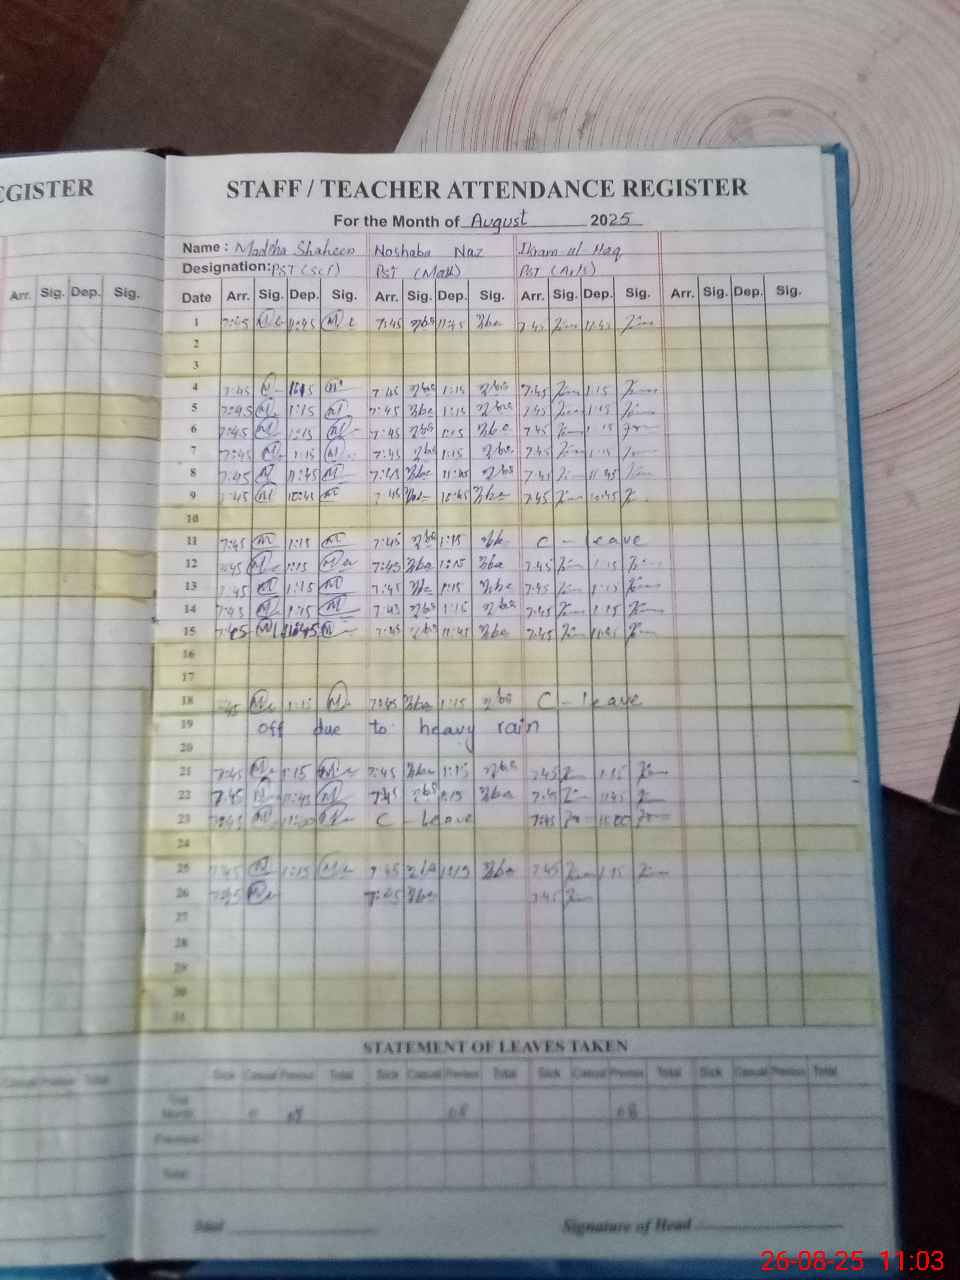 EGISTER
STAFF / TEACHER ATTENDANCE REGISTER
For the Month of August 2025
Name : Madeha Shaheen Noshaba Naz Ikram ul Haq
Designation: PST (Sci) PST (Math) PST (Arts)
Arr. Sig. Dep. Sig. Date Arr. Sig. Dep. Sig. Arr. Sig. Dep. Sig. Arr. Sig. Dep. Sig. Arr. Sig. Dep. Sig.
1 7:45 11:45 7:45 11:45 7:45 11:45
2
3
4 7:45 1:15 7:45 1:15 7:45 1:15
5 7:45 1:15 7:45 1:15 7:45 1:15
6 7:45 1:15 7:45 1:15 7:45 1:15
7 7:45 1:15 7:45 1:15 7:45
8 7:45 11:45 7:45 11:45 7:45 11:45
9 7:45 10:45 7:45 10:45 7:45 10:45
10
11 7:45 1:15 7:45 1:15 C - leave
12 7:45 1:15 7:45 1:15 7:45 1:15
13 7:45 1:15 7:45 1:15 7:45 1:15
14 7:45 1:15 7:45 1:15 7:45 1:15
15 7:45 11:45 7:45 11:45 7:45 11:45
16
17
18 7:45 1:15 7:45 1:15 C - leave
19 off due to heavy rain
20
21 7:45 1:15 7:45 1:15 7:45 1:15
22 7:45 11:45 7:45 7:45 11:45
23 7:45 11:00 C - Leave 7:45 11:00
24
25 7:45 1:15 7:45 1:15 7:45 1:15
26 7:45 7:45 7:45
27
28
29
30
31
STATEMENT OF LEAVES TAKEN
Casual Previous Total Sick Casual Previous Total Sick Casual Previous Total Sick Casual Previous Total Sick Casual Previous Total
This Month 08 08 08
Previous
Total
Signature of Head
26-08-25 11:03